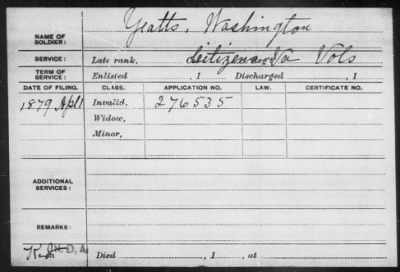 NAME OF SOLDIER: Yeatts, Washington
SERVICE: Late rank, Citizen Va Vols
TERM OF SERVICE: Enlisted , 1 Discharged , 1
DATE OF FILING. CLASS. APPLICATION NO. LAW. CERTIFICATE NO.
1879 Apl 1 Invalid, 276535
Widow,
Minor,
ADDITIONAL SERVICES:
REMARKS:
Died , 1 , at